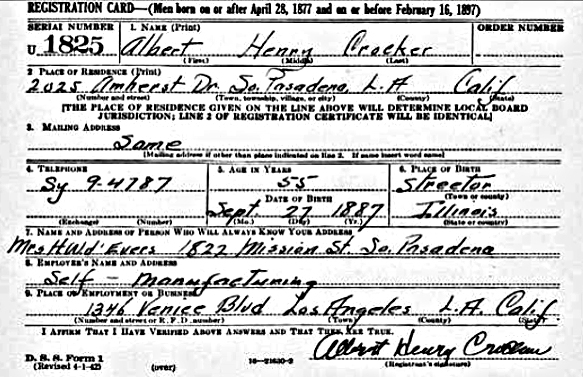 REGISTRATION CARD—(Men born on or after April 28, 1877 and on or before February 16, 1897)
SERIAL NUMBER 1. NAME (Print) ORDER NUMBER
U 1825 Albert Henry Crocker
(First) (Middle) (Last)
2. PLACE OF RESIDENCE (Print)
2025 Amherst Dr. So. Pasadena, L.A. Calif
(Number and street) (Town, township, village, or city) (County) (State)
[THE PLACE OF RESIDENCE GIVEN ON THE LINE ABOVE WILL DETERMINE LOCAL BOARD
JURISDICTION; LINE 2 OF REGISTRATION CERTIFICATE WILL BE IDENTICAL]
3. MAILING ADDRESS
Same
[Mailing address if other than place indicated on line 2. If same insert word same]
4. TELEPHONE 5. AGE IN YEARS 6. PLACE OF BIRTH
Sy 9-4787 55 Streetor
DATE OF BIRTH (Town or county)
Sept. 27 1887 Illinois
(Exchange) (Number) (Mo.) (Day) (Yr.) (State or country)
7. NAME AND ADDRESS OF PERSON WHO WILL ALWAYS KNOW YOUR ADDRESS
Mrs 1822 Mission St. So. Pasadena
8. EMPLOYER'S NAME AND ADDRESS
Self - Manufacturing
9. PLACE OF EMPLOYMENT OR BUSINESS
1346 Venice Blvd Los Angeles L.A. Calif
(Number and street or R. F. D. number) (Town) (County) (State)
I AFFIRM THAT I HAVE VERIFIED ABOVE ANSWERS AND THAT THEY ARE TRUE.
Albert Henry Crocker
D. S. S. Form 1 (Registrant's signature)
(Revised 4-1-42) (over) 16—21630-2